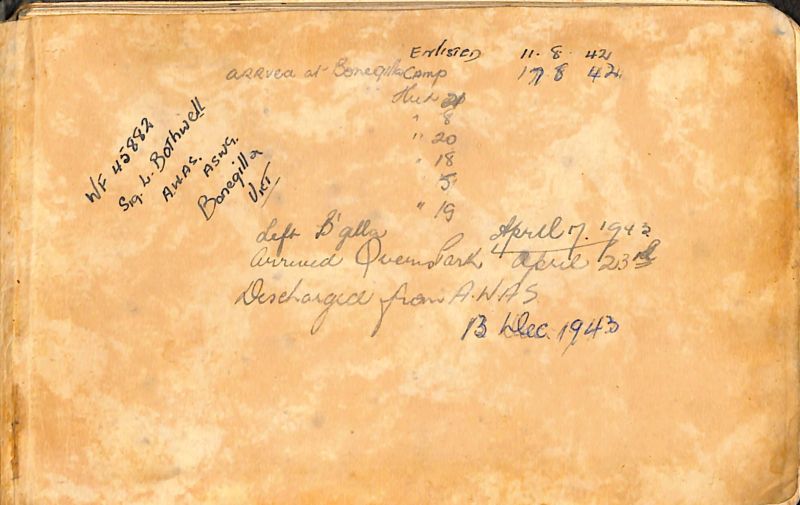 Enlisted 11.8.42
arrved at Bonegilla Camp 17 8 42
Hut 21
" 8
" 20
" 18
" 5
" 19
WF 45882
Sig. L. Bothwell
A.W.A.S. ASWG.
Bonegilla
Vict
Left B'gilla April 17. 1943
Arrived Ovens Park April 23rd
Discharged from A.W.A.S
13 Dec. 1943